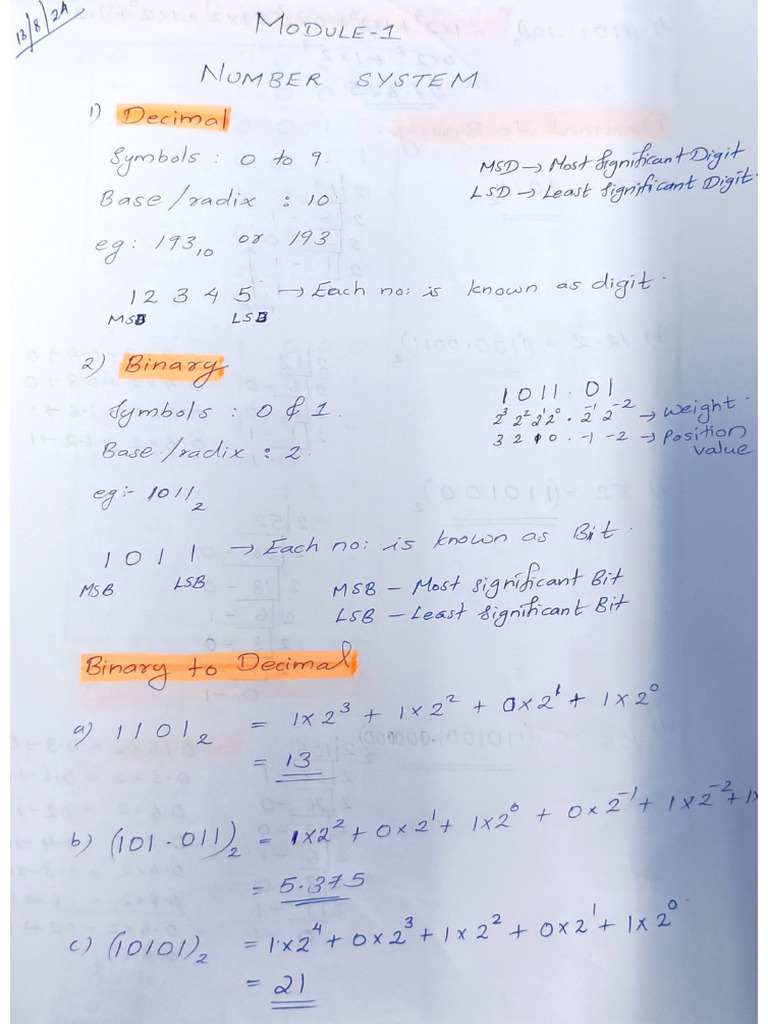 13/8/24
MODULE-1
NUMBER SYSTEM
1) Decimal
Symbols : 0 to 9.
Base/radix : 10.
eg: 193₁₀ or 193
MSD → Most Significant Digit
LSD → Least Significant Digit.
1 2 3 4 5 → Each no: is known as digit.
MSB LSB
2) Binary
Symbols : 0 & 1.
Base/radix : 2.
eg:- 1011₂
1011.01
2³ 2² 2¹ 2⁰ . 2⁻¹ 2⁻² → Weight.
3 2 1 0 . -1 -2 → Position value
1 0 1 1 → Each no: is known as Bit.
MSB LSB
MSB – Most significant Bit
LSB – Least Significant Bit
Binary to Decimal
a) 1101₂ = 1×2³ + 1×2² + 0×2¹ + 1×2⁰
= 13
b) (101.011)₂ = 1×2² + 0×2¹ + 1×2⁰ + 0×2⁻¹ + 1×2⁻² + 1×
= 5.375
c) (10101)₂ = 1×2⁴ + 0×2³ + 1×2² + 0×2¹ + 1×2⁰
= 21